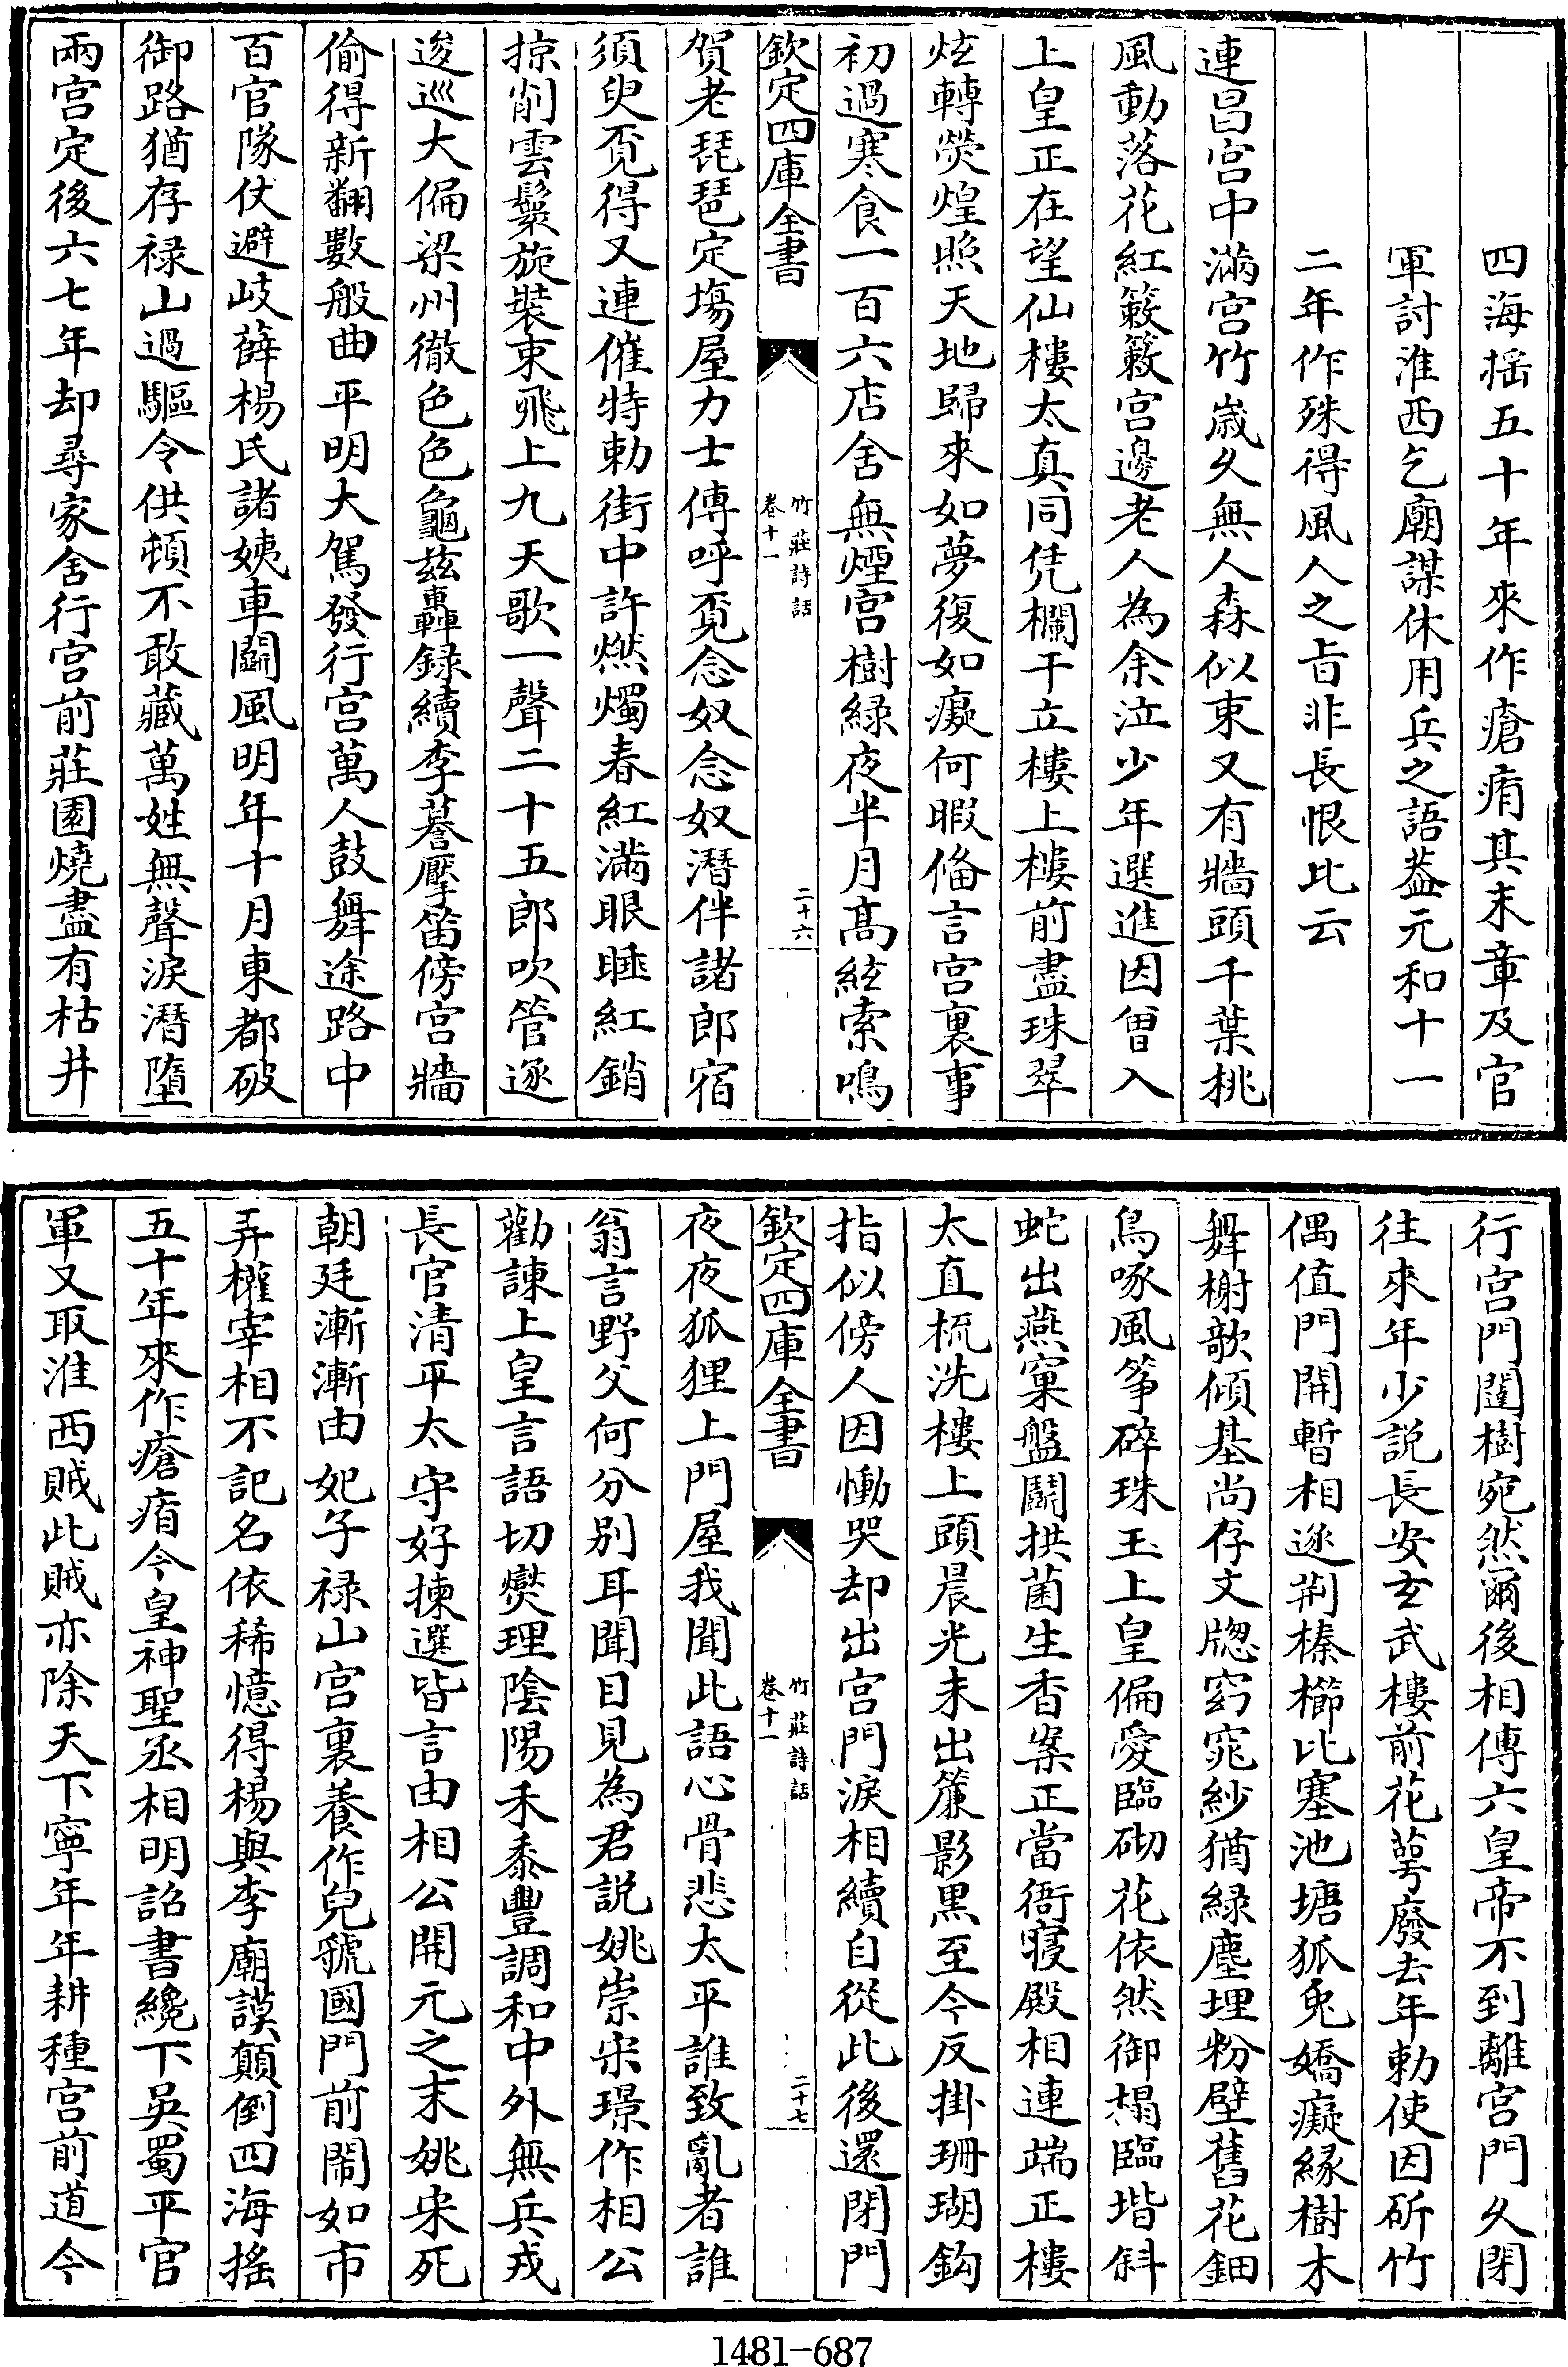 四海揺五十年來作瘡痏其末章及官
軍討淮西乞廟謀休用兵之語葢元和十一
二年作殊得風人之㫖非長恨比云
連昌宫中滿宫竹歳久無人森似束又有牆頭千葉桃
風動落花紅簌簌宫邊老人為余泣少年選進因曾入
上皇正在望仙樓太真同凭欄干立樓上樓前盡珠翠
炫轉熒煌照天地歸來如夢復如癡何暇備言宫裏事
初過寒食一百六店舍無煙宫樹緑夜半月髙絃索鳴
欽定四庫全書
竹莊詩話
卷十一
二十六
賀老琵琶定塲屋力士傳呼覔念奴念奴潛伴諸郎宿
須臾覔得又連催特勅街中許燃燭春紅滿眼睡紅銷
掠削雲鬟旋裝束飛上九天歌一聲二十五郎吹管逐
逡巡大偏梁州徹色色龜兹轟録續李謩擪笛傍宫牆
偷得新翻數般曲平明大駕發行宫萬人鼓舞途路中
百官隊仗避岐薛楊氏諸姨車鬬風明年十月東都破
御路猶存禄山過驅令供頓不敢藏萬姓無聲淚潛墮
兩宫定後六七年却尋家舍行宫前莊園燒盡有枯井
行宫門闥樹宛然爾後相傳六皇帝不到離宫門久閉
往來年少説長安玄武樓前花萼廢去年勅使因斫竹
偶值門開暫相逐荆榛櫛比塞池塘狐兔嬌癡縁樹木
舞榭欹傾基尚存文牕窈窕紗猶緑塵埋粉壁舊花鈿
鳥啄風筝碎珠玉上皇偏愛臨砌花依然御榻臨堦斜
蛇出燕窠盤鬬拱菌生香案正當衙寢殿相連端正樓
太直梳洗樓上頭晨光未出簾影黒至今反掛珊瑚鈎
指似傍人因慟哭却出宫門淚相續自從此後還閉門
欽定四庫全書
竹莊詩話
卷十一
二十七
夜夜狐狸上門屋我聞此語心骨悲太平誰致亂者誰
翁言野父何分别耳聞目見為君説姚崇宋璟作相公
勸諫上皇言語切爕理隂陽禾黍豐調和中外無兵戎
長官清平太守好揀選皆言由相公開元之末姚宋死
朝廷漸漸由妃子禄山宫裏養作兒虢國門前鬧如市
弄權宰相不記名依稀憶得楊與李廟謨顛倒四海搖
五十年來作瘡痏今皇神聖丞相明詔書纔下吳蜀平官
軍又取淮西賊此賊亦除天下寧年年耕種宫前道今
1481-687